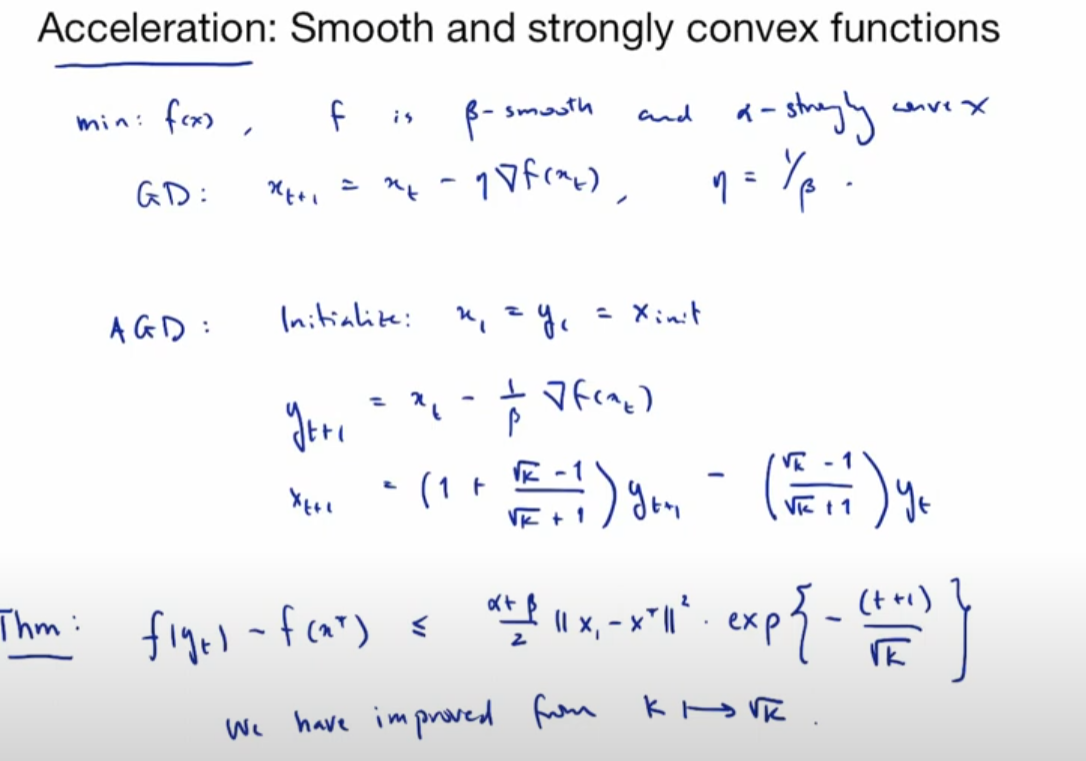 Acceleration: Smooth and strongly convex functions
min: f(x), f is β-smooth and α-strongly convex
GD: x_{t+1} = x_t - η∇f(x_t), η = 1/β.
AGD: Initialize: x_1 = y_1 = x_init
y_{t+1} = x_t - 1/β ∇f(x_t)
x_{t+1} = (1 + (√κ - 1)/(√κ + 1)) y_{t+1} - ((√κ - 1)/(√κ + 1)) y_t
Thm: f(y_t) - f(x*) ≤ (α+β)/2 ||x_1 - x*||² · exp{-(t+1)/√κ}
We have improved from κ ↦ √κ.